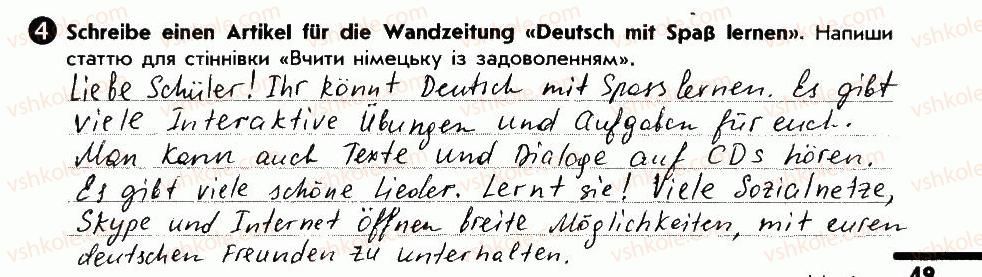 4 Schreibe einen Artikel für die Wandzeitung «Deutsch mit Spaß lernen». Напиши
статтю для стіннівки «Вчити німецьку із задоволенням».
Liebe Schüler! Ihr könnt Deutsch mit Spass lernen. Es gibt
viele Interaktive Übungen und Aufgaben für euch.
Man kann auch Texte und Dialoge auf CDs hören.
Es gibt viele schöne Lieder. Lernt sie! Viele Sozialnetze,
Skype und Internet öffnen breite Möglichkeiten, mit euren
deutschen Freunden zu unterhalten.